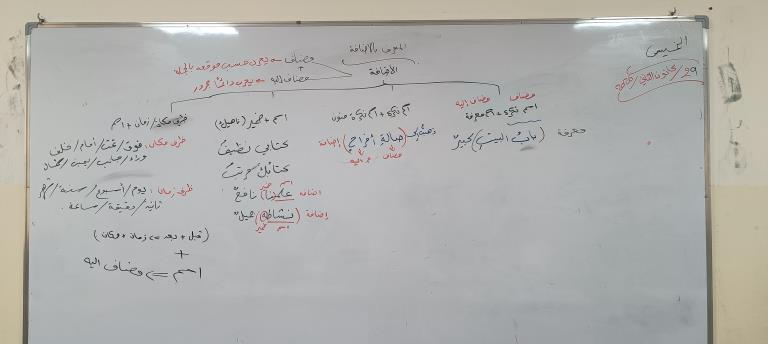 الخميس
29/كانون الثاني/2026
المعرف بالإضافة
الإضافة
مضاف => يعرب حسب موقعه بالجملة
مضاف إليه => يعرب دائماً مجرور
مضاف مضاف إليه
اسم نكرة + اسم معرفة
معرفة (بابُ البيتِ) كبيرٌ
اسم نكرة + اسم نكرة منون
(صالةِ أفراحٍ) إضافة
مضاف م. إليه
اسم + ضمير (ناهيك)
كتابي نظيفٌ
كتابُك
(علمُنا) نافعٌ إضافة
(نشاطُه) إضافة
اسم ضمير
ظرف مكان/زمان + اسم
ظرف مكان: فوق/تحت/أمام/خلف
وراء/جانب/يمين/شمال
ظرف زمان: يوم/أسبوع/سنة/شهر
ثانية/دقيقة/ساعة
(قبل + بعد => زمان + مكان)
+
اسم => مضاف إليه